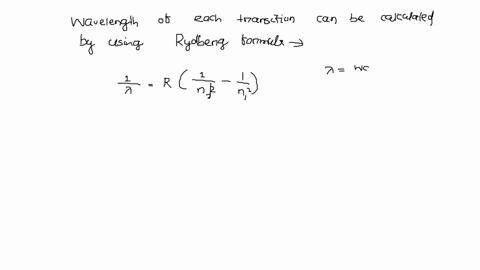 Wavelength of each transition can be calculated
by using Rydberg formula →
1/λ = R ( 1/n_f² − 1/n_i² )
λ = wa